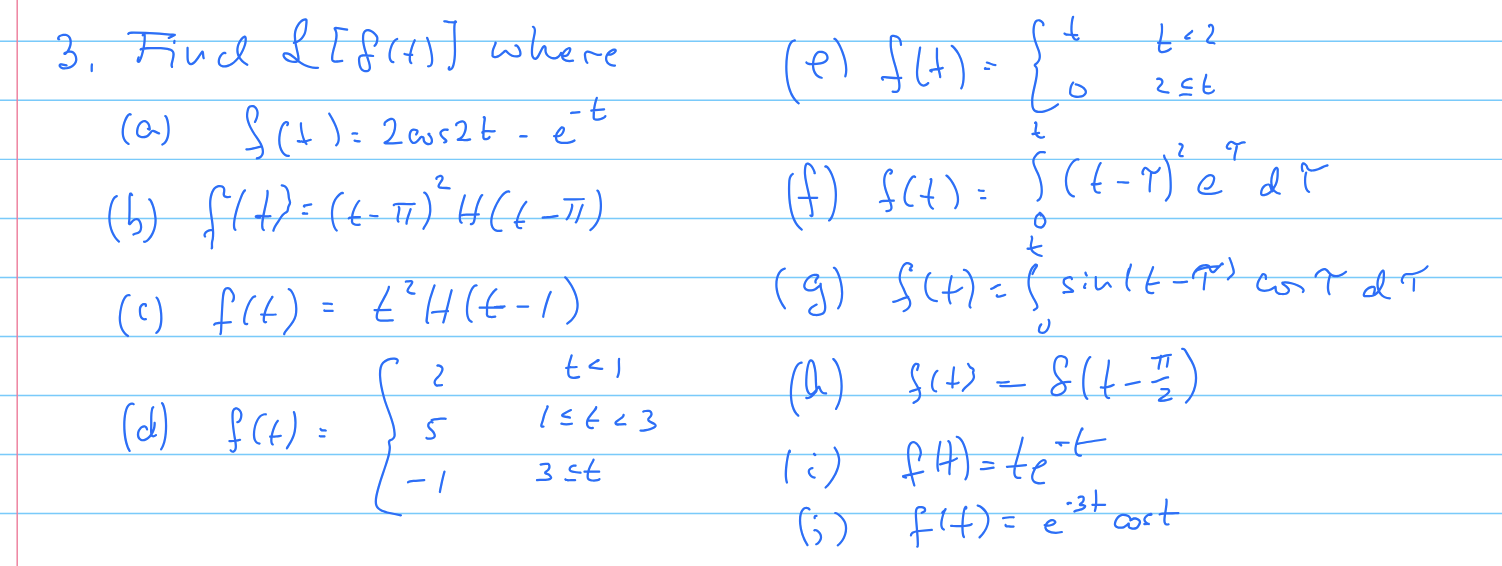 3. Find ℒ[f(t)] where
(a) f(t) = 2cos2t - e^{-t}
(b) f(t) = (t-π)^2 H(t-π)
(c) f(t) = t^2 H(t-1)
(d) f(t) = { 2 t<1
5 1≤t<3
-1 3≤t
(e) f(t) = { t t<2
0 2≤t
(f) f(t) = ∫_0^t (t-τ)^2 e^τ dτ
(g) f(t) = ∫_0^t sin(t-τ) cos τ dτ
(h) f(t) = δ(t-π/2)
(i) f(t) = te^{-t}
(j) f(t) = e^{-3t} cost